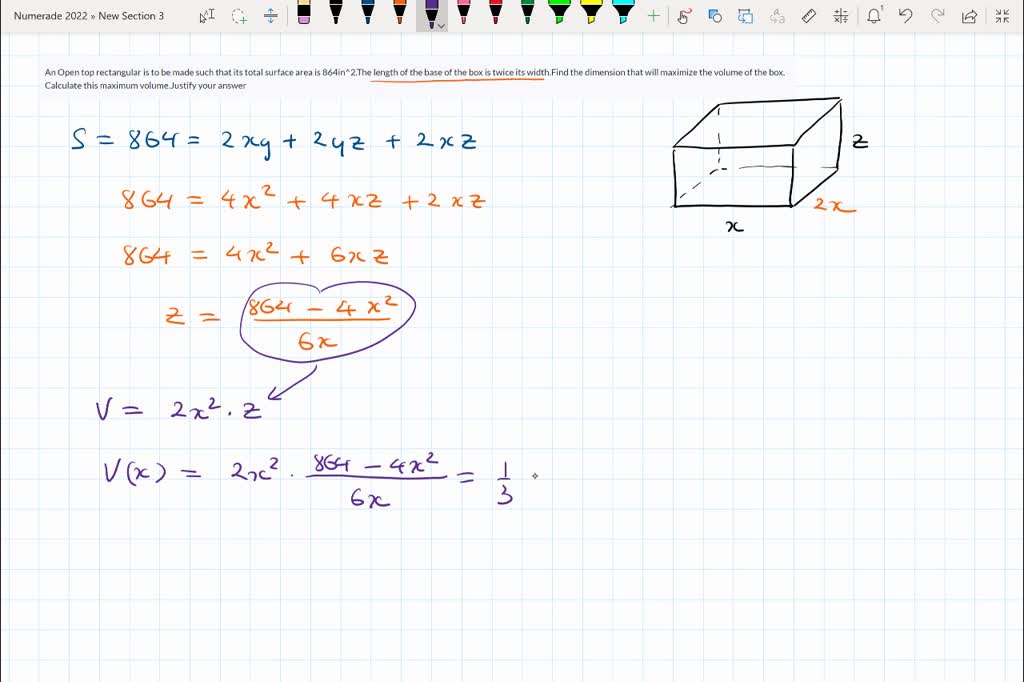 Numerade 2022 » New Section 3
An Open top rectangular is to be made such that its total surface area is 864in^2.The length of the base of the box is twice its width.Find the dimension that will maximize the volume of the box.
Calculate this maximum volume.Justify your answer
S = 864 = 2xy + 2yz + 2xz
864 = 4x² + 4xz + 2xz
864 = 4x² + 6xz
z = (864 - 4x²)/(6x)
V = 2x² . z
V(x) = 2x² . (864 - 4x²)/(6x) = 1/3
z
2x
x